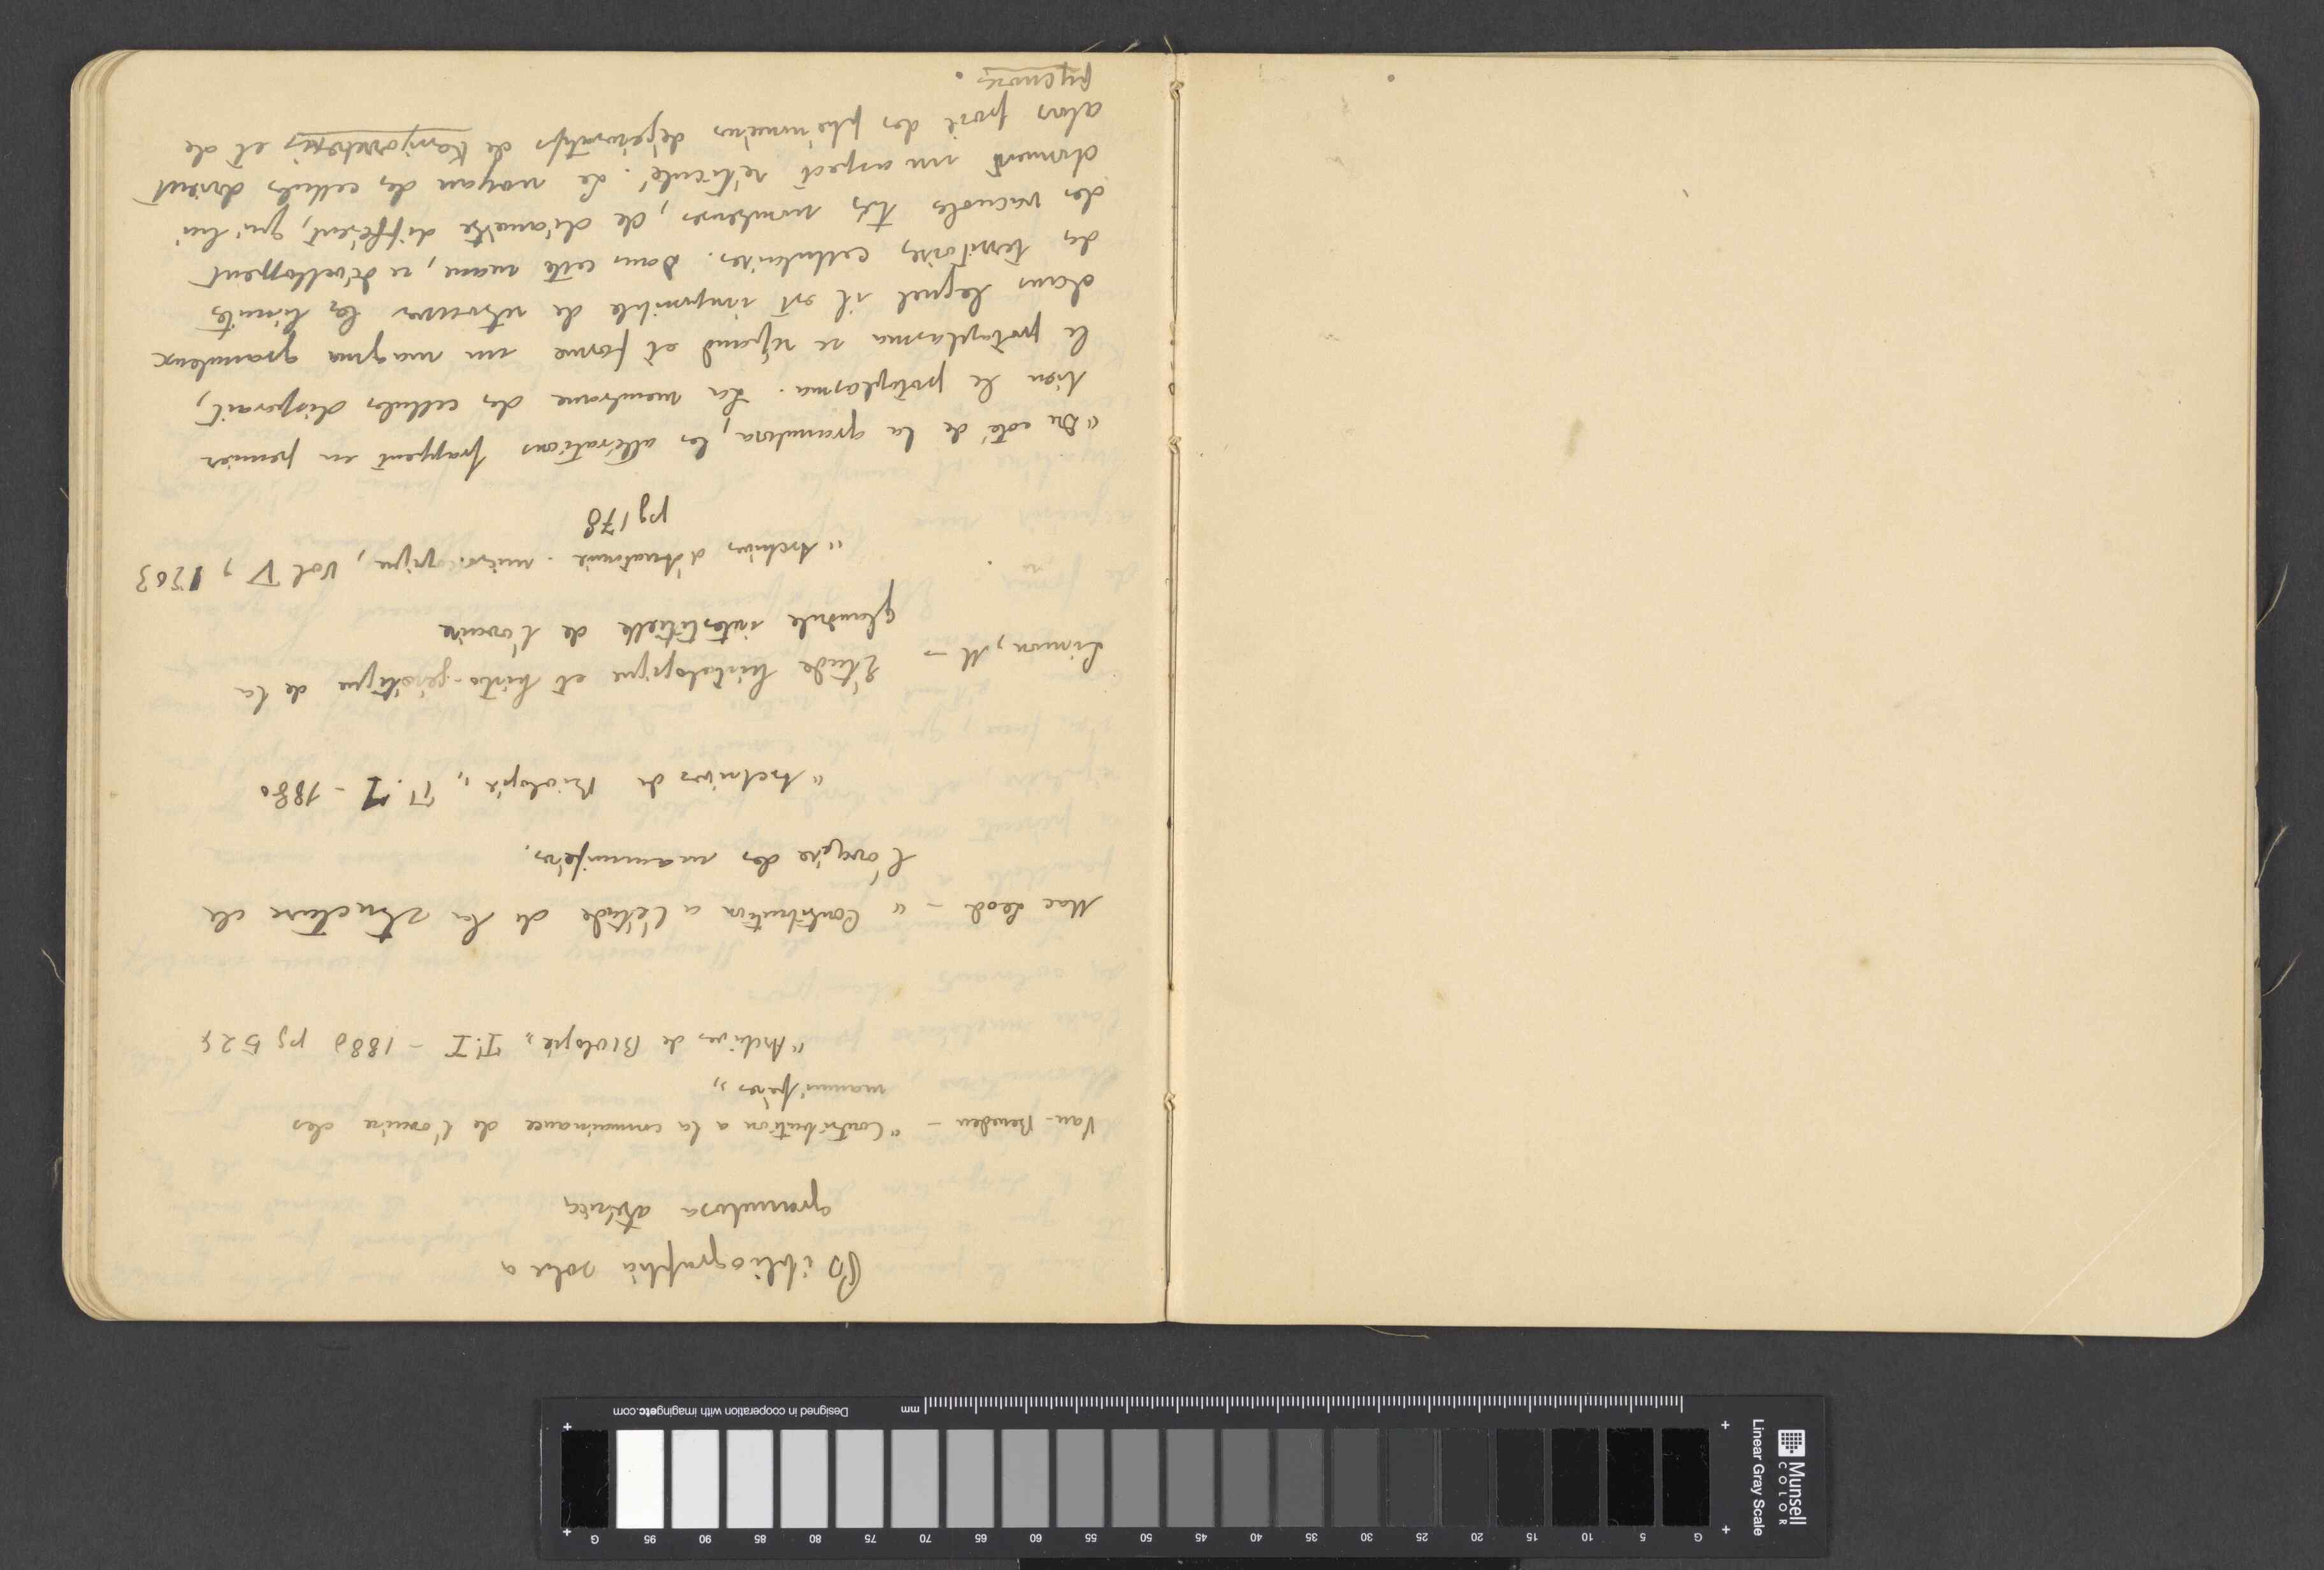 Bibliographia sobre a
granulosa atrésica
Van-Beneden - "Contribution a la connaissance de l'ovaire des
mammifères"
"Archives de Biologie" T.I - 1880 pg 524
Mac Leod - "Contribution a l'étude de la structure de
l'ovaire des mammifères.
"Archives de Biologie" T.I - 1880
Limon, M - Étude histologique et histo-génétique de la
glandule interstitielle de l'ovaire
"Archives d'Anatomie microscopique, Vol V, 1903
pg 178
"Du coté de la granulosa, les altérations frappent en premier
lieu le protoplasma. La membrane des cellules disparait,
le protoplasma se répand et forme un magma granuleux
dans lequel il est impossible de retrouver les limites
des territoires cellulaires. Dans cette masse, se développent
des vacuoles très nombreuses, de diamètre différent, qui lui
donnent un aspect réticulé. Le noyau des cellules devient
alors des phénomènes dégénératifs de Karyorrhexis et de
pycnose.
Munsell
COLOR
Linear Gray Scale
mm
Designed in cooperation with imagingetc.com
G 5 10 15 20 25 30 35 40 45 50 55 60 65 70 75 80 85 90 95 G